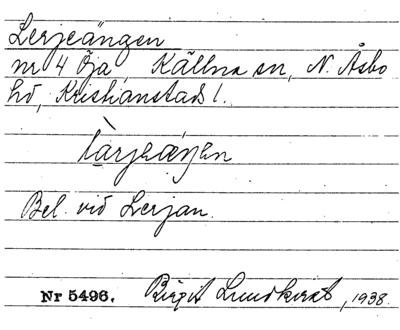 Lerjeängen
nr 4 Öja, Källna sn, N. Åsbo
hd, Kristianstads l.
làrjeæŋen
Bel. vid Lerjan.
Nr 5496. Birgit Lundkvist, 1938.